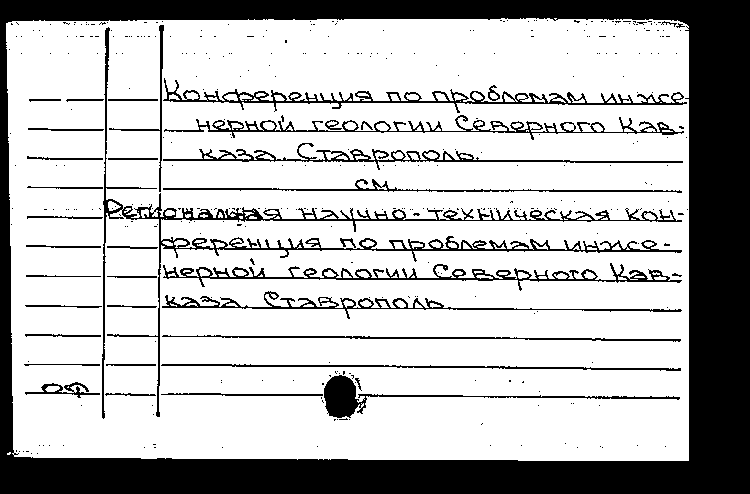 Конференция по проблемам инже-
нерной геологии Северного Кав-
каза. Ставрополь.
см.
Региональная научно-техническая кон-
ференция по проблемам инже-
нерной геологии Северного Кав-
каза. Ставрополь.
ОФ